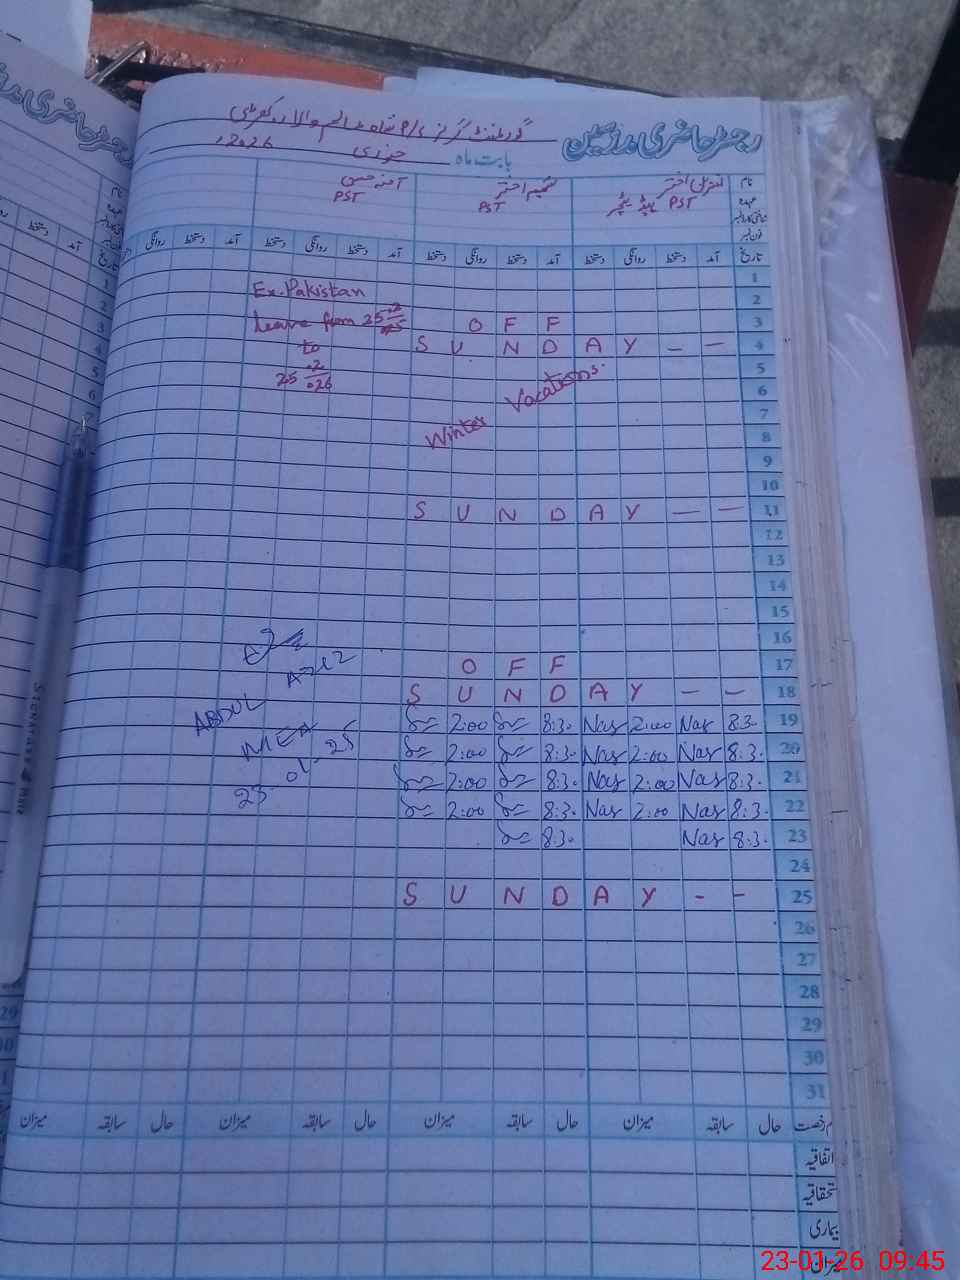 رجسٹر حاضری مدرسین
گورنمنٹ گرلز
بابت ماہ جنوری 2026ء
نام اختر اختر آمنہ
عہدہ PST ہیڈ ٹیچر PST PST
تاریخ آمد دستخط روانگی دستخط آمد دستخط روانگی دستخط آمد دستخط روانگی دستخط آمد دستخط روانگی
1 Ex. Pakistan
2
3 O F F Leave from 25 .2
4 S U N D A Y – – to
5 25 .2 .26
6 Winter Vacations.
7
8
9
10
11 S U N D A Y — —
12
13
14
15
16
17 O F F
18 S U N D A Y – –
19 8:3. Nas 2:00 Nas 8:3. 2:00
20 8:3. Nas 2:00 Nas 8:3. 2:00
21 8:3. Nas 2:00 Nas 8:3. 2:00
22 8:3. Nas 2:00 Nas 8:3. 2:00
23 8:3. Nas 8:3.
ABDUL
MEA
24
25 S U N D A Y - -
26
27
28
29
30
31
حال سابقہ میزان حال سابقہ میزان حال سابقہ میزان حال سابقہ میزان
اتفاقیہ
استحقاقیہ
بیماری
میزان
23-01-26 09:45